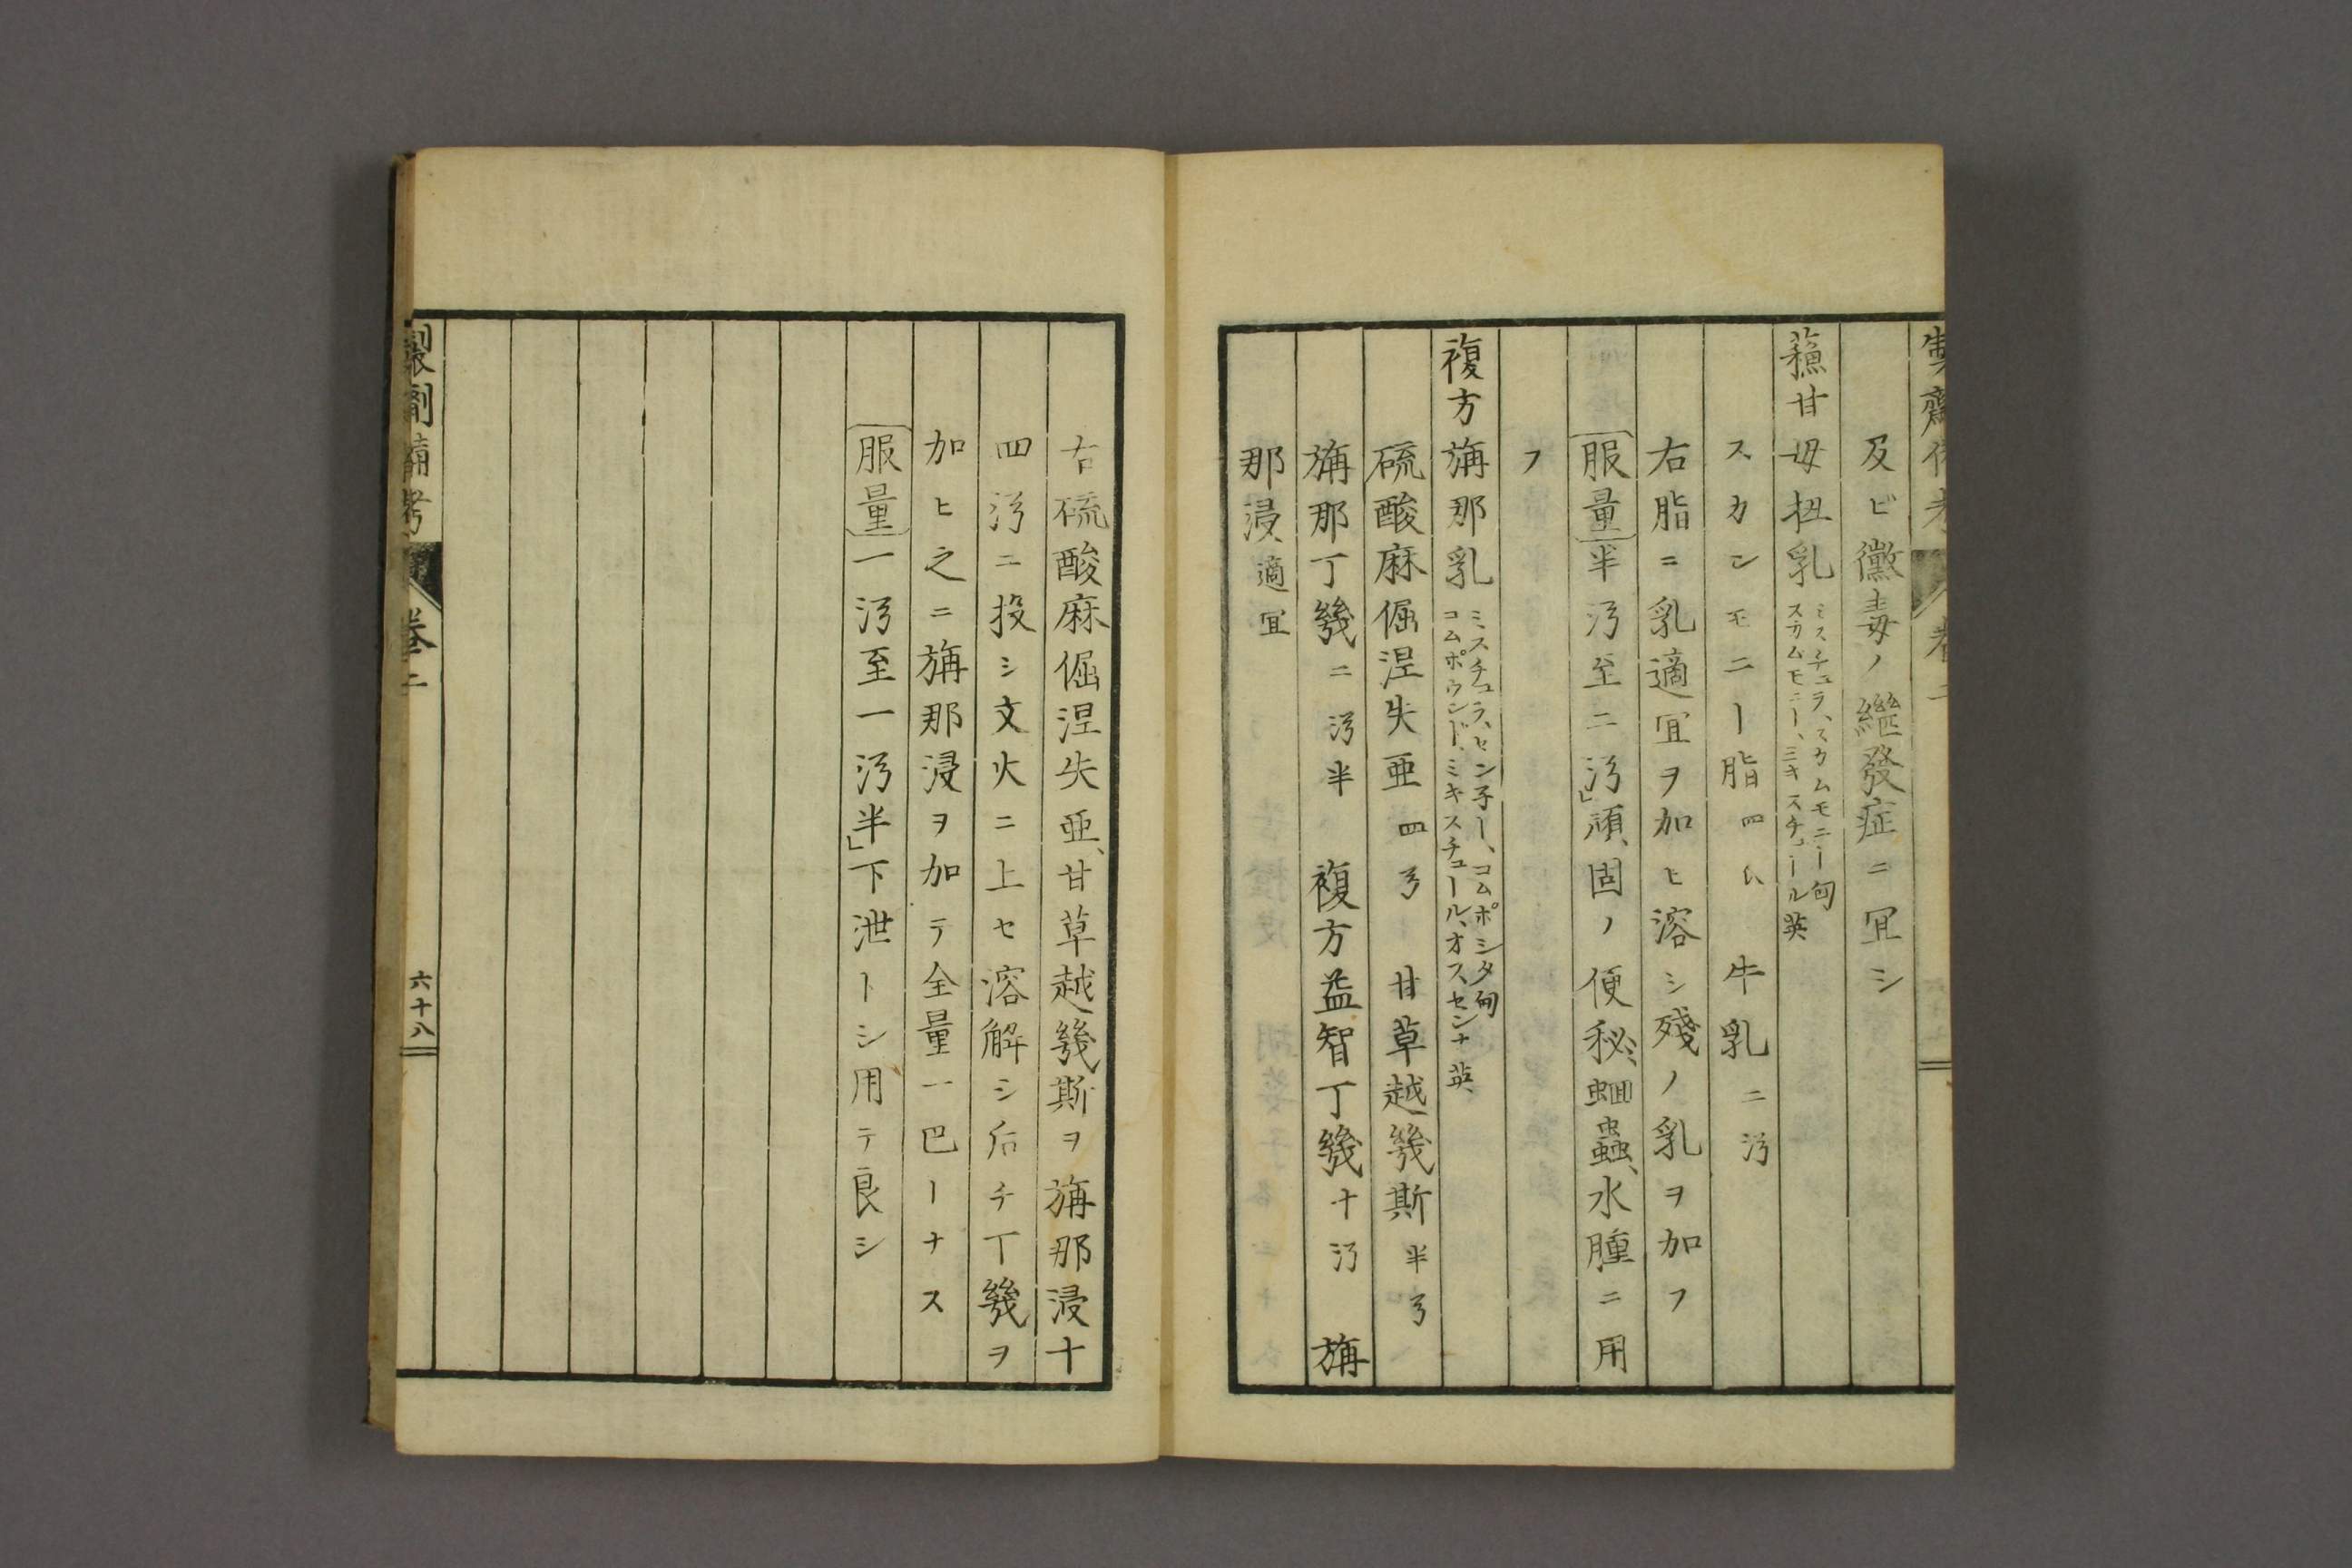 及ビ黴毒ノ繼發症ニ冝シ
蘓甘毋扭乳 ミスチュラ、スカムモニー 匈
スカムモニー、ミキスチュール 英
スカンモニー脂 四 牛乳 二㳑
右脂ニ乳適冝ヲ加ヒ溶シ殘ノ乳ヲ加フ
服量 半㳑至二㳑」頑固ノ便秘、蛔蟲、水腫ニ用
フ
複方旃那乳 ミスチュラ、セン子ー、コムポシタ 匈
コムポウンド、ミキスチュール、オフ、センナ 英
硫酸麻倔涅失亜 四 甘草越幾斯 半
旃那丁幾 二㳑半 複方益智丁幾 十㳑 旃
那浸 適冝
右硫酸麻倔涅失亜、甘草越幾斯ヲ旃那浸十
四㳑ニ投シ文火ニ上セ溶解シ后チ丁幾ヲ
加ヒ之ニ旃那浸ヲ加テ全量一巴ーナス
服量 一㳑至一㳑半」下泄トシ用テ良シ
製劑備考 卷二 六十八